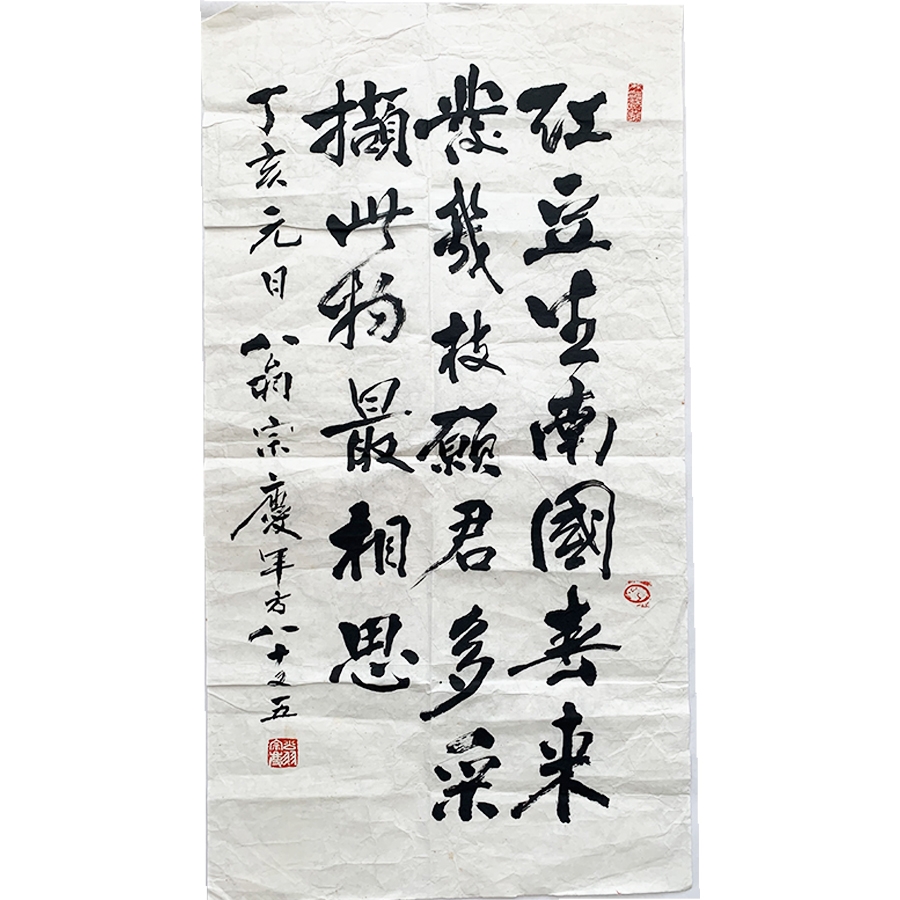 红豆生南國春来
發幾枝願君多采
擷此物最相思
丁亥元日八翁宗慶年方八十又五